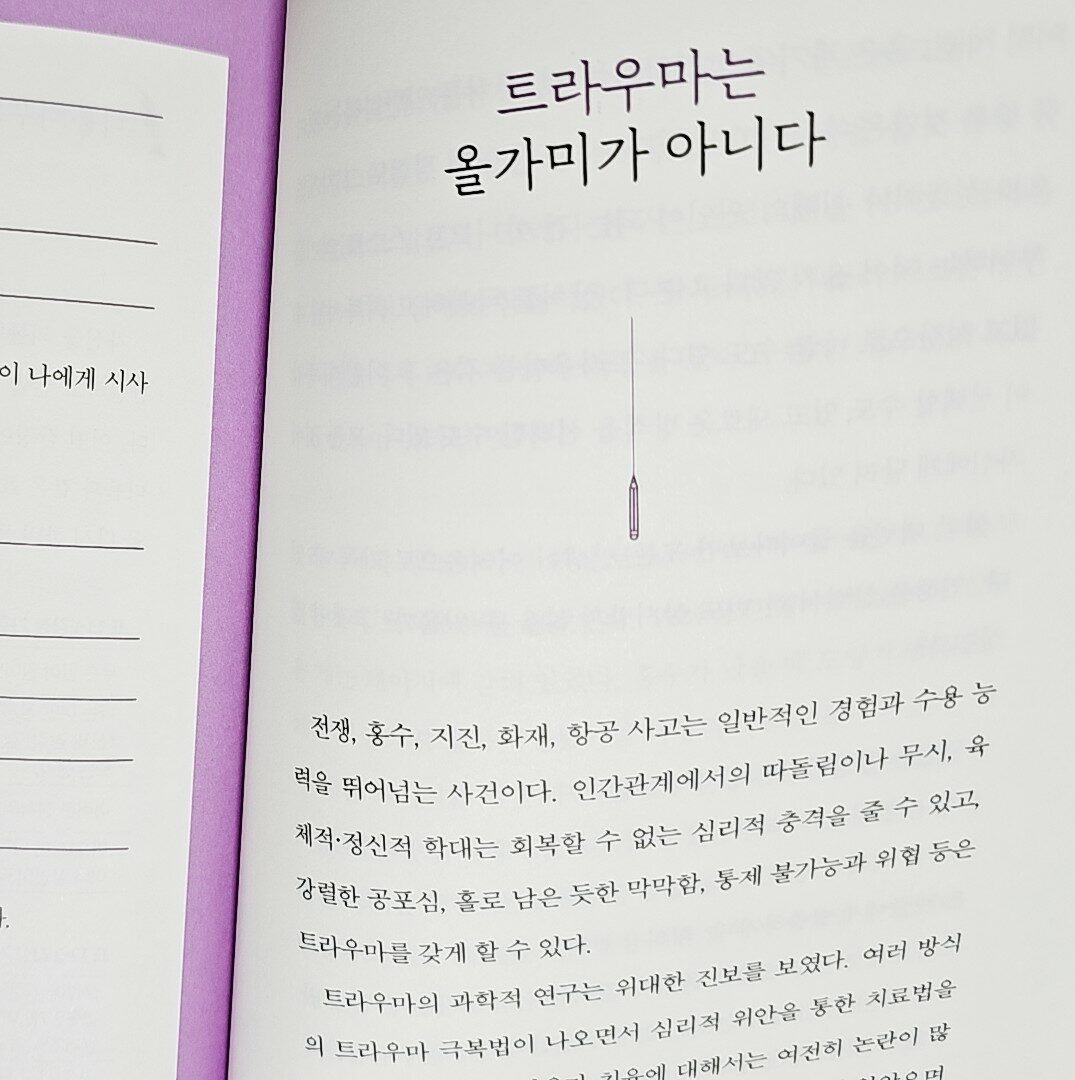 이 나에게 시사
트라우마는
올가미가 아니다
전쟁, 홍수, 지진, 화재, 항공 사고는 일반적인 경험과 수용 능
력을 뛰어넘는 사건이다. 인간관계에서의 따돌림이나 무시, 육
체적·정신적 학대는 회복할 수 없는 심리적 충격을 줄 수 있고,
강렬한 공포심, 홀로 남은 듯한 막막함, 통제 불가능과 위협 등은
트라우마를 갖게 할 수 있다.
트라우마의 과학적 연구는 위대한 진보를 보였다. 여러 방식
의 트라우마 극복법이 나오면서 심리적 위안을 통한 치료법을
치유에 대해서는 여전히 논란이 많